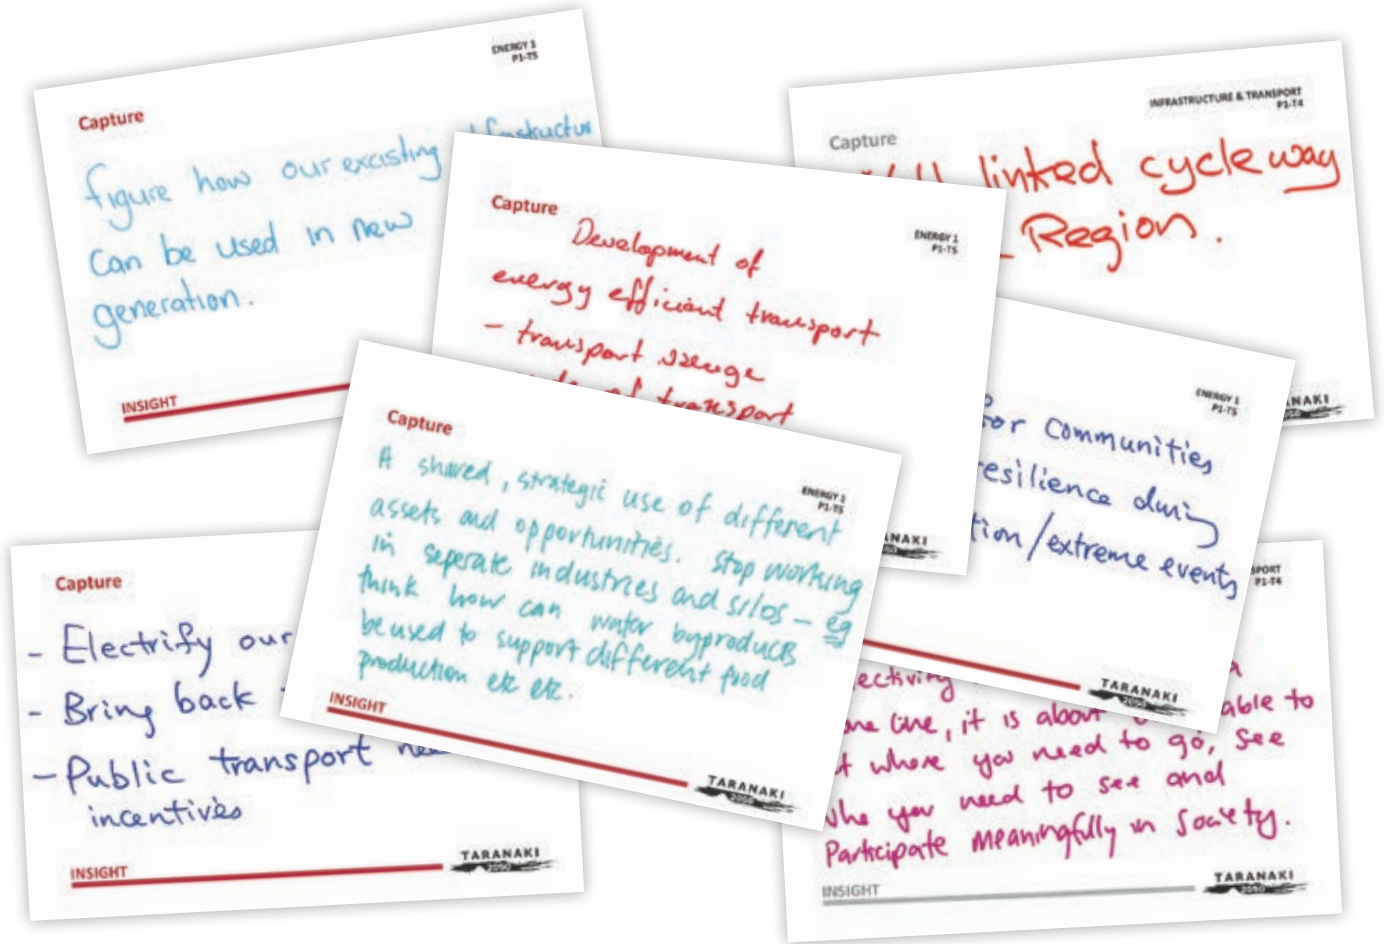 ENERGY 3
P1-T5
Capture
figure how our excisting
can be used in new
generation.
INSIGHT
INFRASTRUCTURE & TRANSPORT
P1-T4
Capture
linked cycleway
Region.
Capture
ENERGY 1
P1-T5
Development of
energy efficient transport
- transport
of transport
ANAKI
ENERGY 1
P1-T5
for communities
resilience during
tion/extreme events
TARANAKI
2050
NAKI
Capture
ENERGY 2
P1-T5
A shared, strategic use of different
assets and opportunities. Stop working
in seperate industries and silos - eg
think how can water byproducts
be used to support different food
production etc etc.
INSIGHT
TARANAKI
2050
Capture
- Electrify our
- Bring back
- Public transport
incentives
INSIGHT
TARANAKI
2050
SPORT
P1-T4
ectivity
one line, it is about able to
where you need to go, see
who you need to see and
Participate meaningfully in society.
INSIGHT
TARANAKI
2050